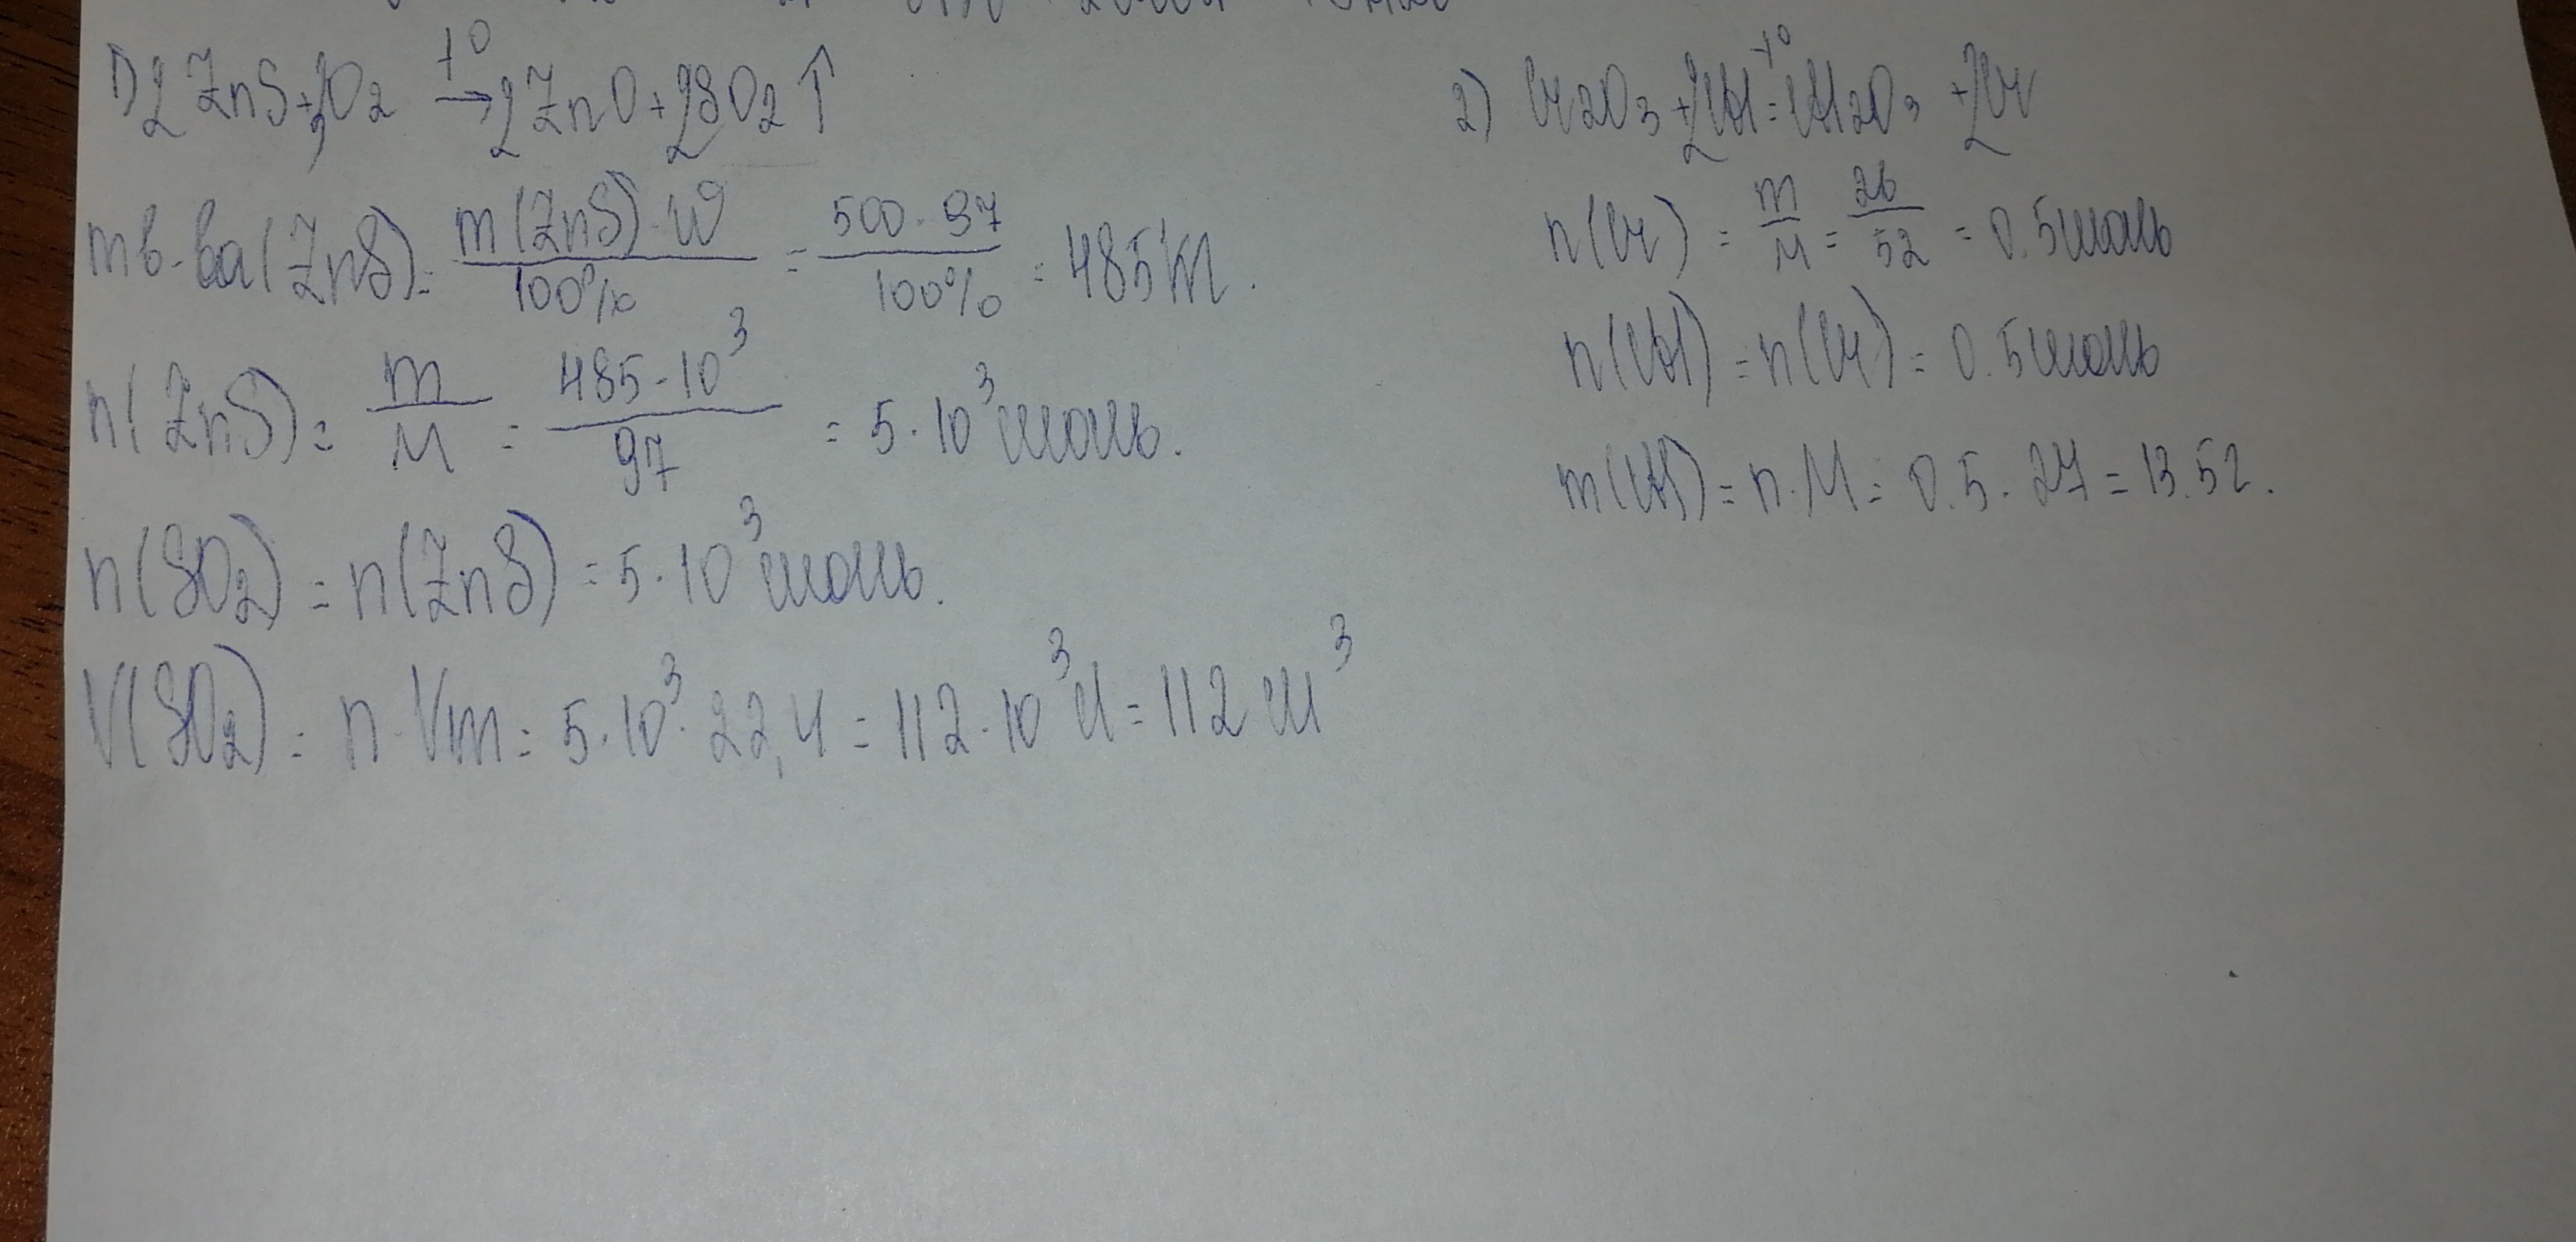 1) 2ZnS+3O2 t° → 2ZnO+2SO2↑
mв-ва(ZnS)= m(ZnS)·W / 100% = 500·97 / 100% = 485кг.
n(ZnS)= m / M = 485·10³ / 97 = 5·10³моль.
n(SO2)=n(ZnS)=5·10³моль.
V(SO2)= n·Vm=5·10³·22,4=112·10³л=112м³
2) Cr2O3+2Al t° = Al2O3 +2Cr
n(Cr)= m / M = 26 / 52 = 0.5моль
n(Al)=n(Cr)= 0.5моль
m(Al)=n·M= 0.5·27=13.5г.